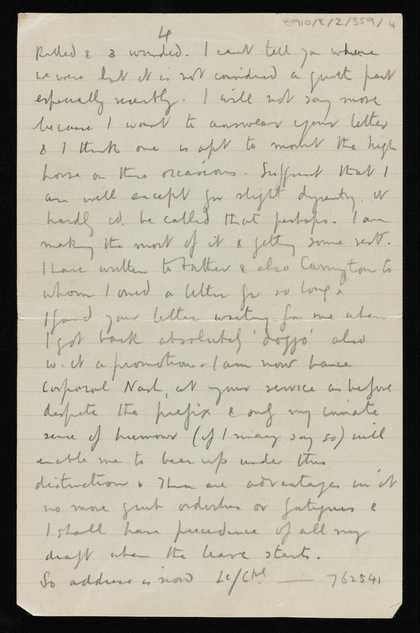 8910/8/2/359/4
4
Killed & 3 wounded. I cant tell you where
we were but it is not considered a quiet part
especially recently. I will not say more
because I want to answear your letter
& I think one is apt to mount the high
horse on these occasions. Sufficient that I
am well except for slight dysentry. it
hardly cd. be called that perhaps. I am
making the most of it & getting some rest.
I have written to Father & also Carrington to
whom I owed a letter for so long.
I found your letter waiting for me when
I got back absolutely 'doggo' also
w. it a promotion. I am now Lance
Corporal Nash, at your service as before
despite the prefix & only my innate
sense of humour (if I may say so) will
enable me to bear up under this
distinction. There are advantages in it
no more grub orderlies or fatigues &
I shall have precedence of all my
draft when the leave starts.
So address is now Lc/Cpl — 762541